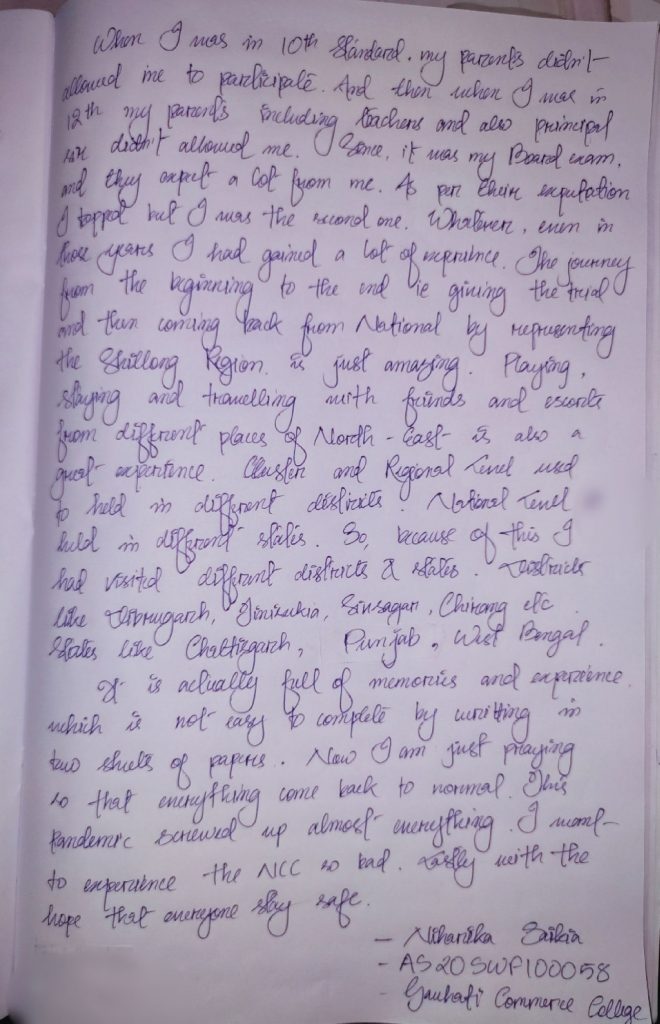 When I was in 10th Standard, my parents didn't
allowed me to participate. And then when I was in
12th my parents including teachers and also principal
sir didn't allowed me. Since, it was my Board exam,
and they expect a lot from me. As per their expectation
I topped but I was the second one. Whatever, even in
those years I had gained a lot of experience. The journey
from the beginning to the end ie giving the trial
and then coming back from National by representing
the Shillong Region is just amazing. Playing,
staying and travelling with friends and escorts
from different places of North-East is also a
great experience. Cluster and Regional level used
to held in different districts. National level
held in different states. So, because of this I
had visited different districts & states. Districts
like Dibrugarh, Tinisukia, Sivsagar, Chirang etc.
States like Chattisgarh, Punjab, West Bengal.
It is actually full of memories and experience
which is not easy to complete by writting in
two sheets of papers. Now I am just praying
so that everything come back to normal. This
Pandemic screwed up almost everything. I want
to experience the NCC so bad. Lastly with the
hope that everyone stay safe.
- Niharika Saikia
- AS20SWP100058
- Gauhati Commerce College